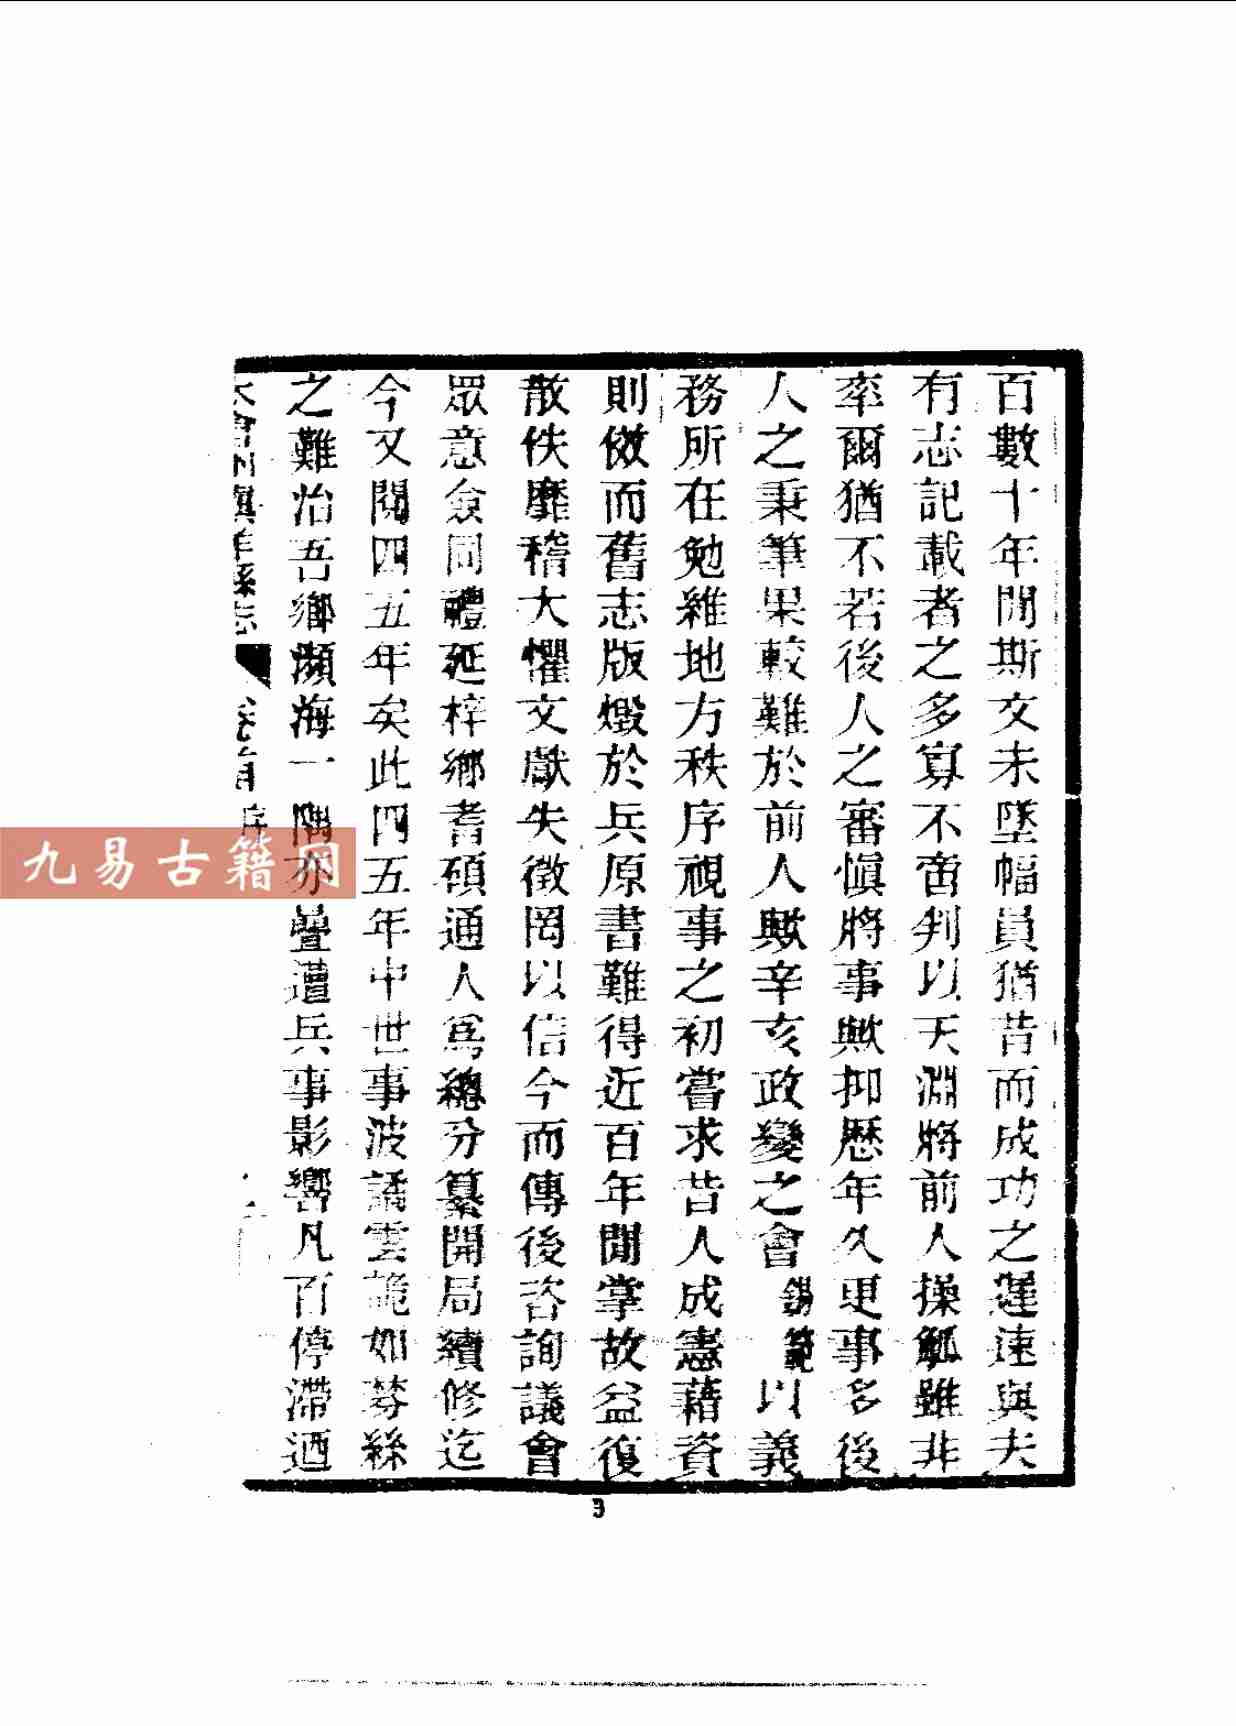 百數十年間斯文未墜幅員猶昔而成功之遲速與夫
有志記載者之多寡不啻判以天淵將前人操觚雖非
率爾猶不若後人之審愼將事歟抑歷年久更事多後
人之秉筆果較難於前人歟辛亥政變之會錫範以義
務所在勉維地方秩序視事之初嘗求昔人成憲藉資
則傚而舊志版燬於兵原書難得近百年間掌故益復
散佚靡稽大懼文獻失徵罔以信今而傳後咨詢議會
眾意僉同禮延梓鄉耆碩通人爲總分纂開局續修迄
今又閱四五年矣此四五年中世事波譎雲詭如棼絲
之難治吾鄉瀕海一隅亦疊遭兵事影響凡百停滯迺
縣志 卷首 序
九易古籍网
3